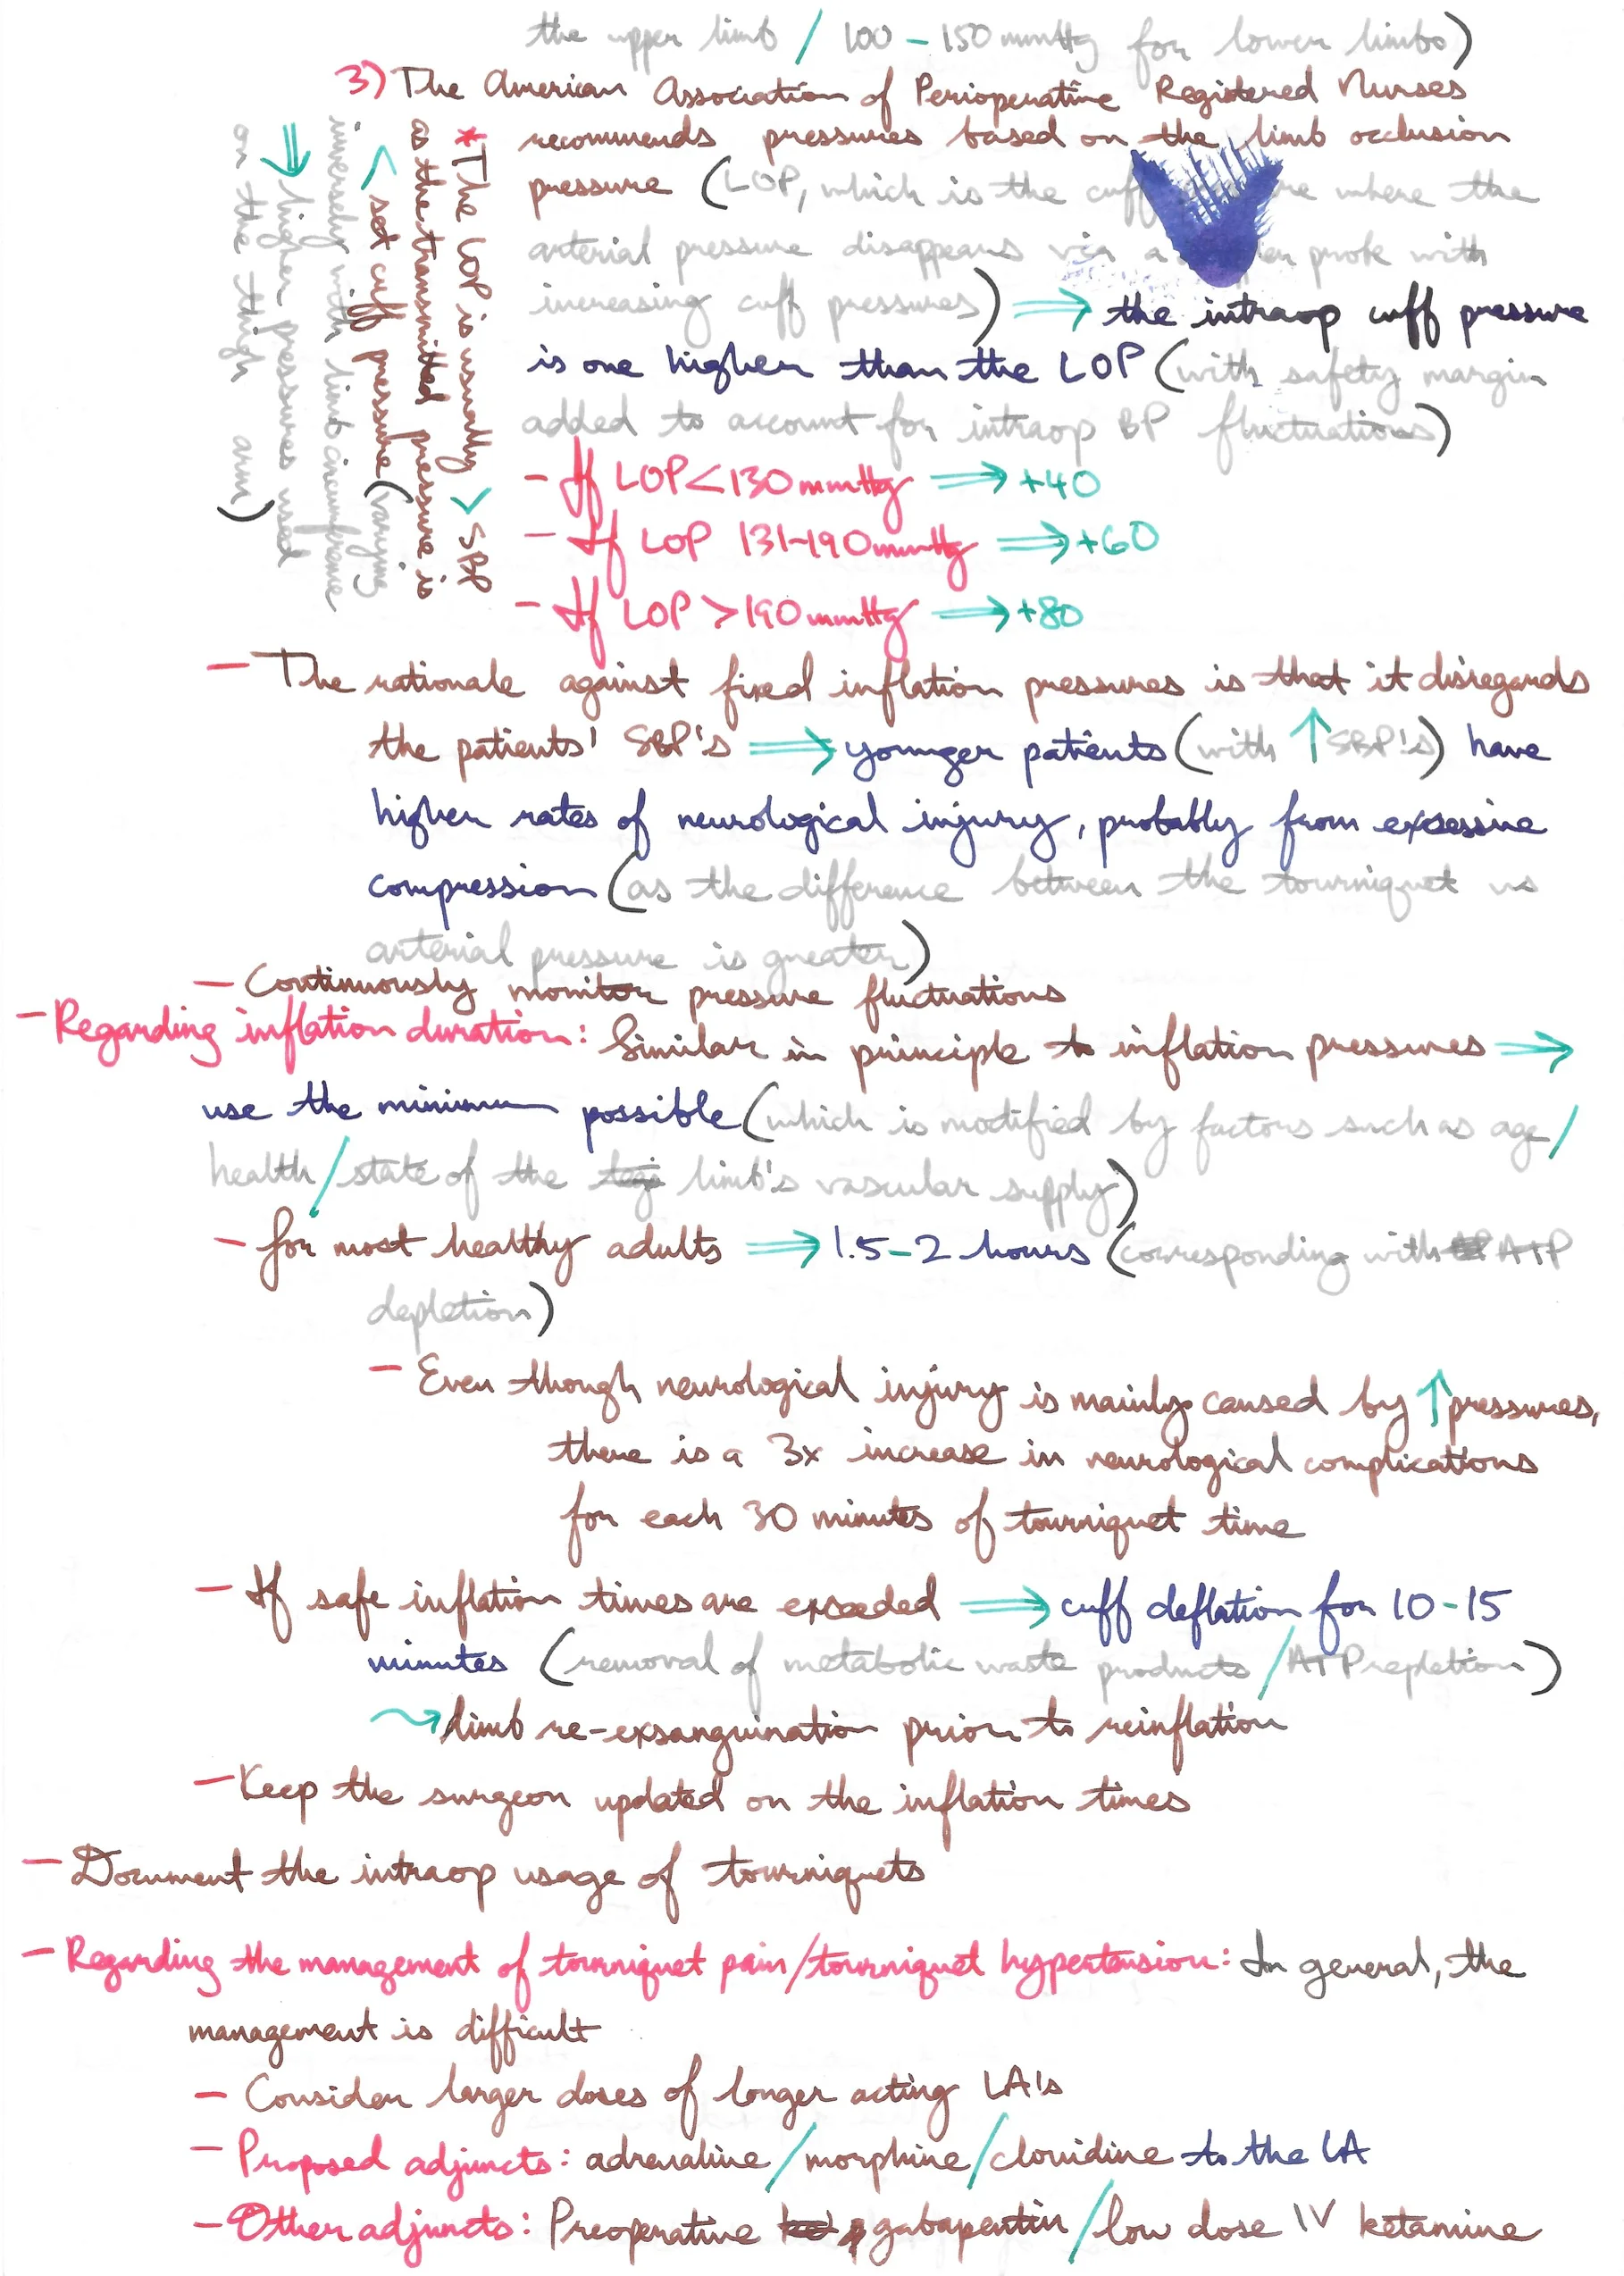 the upper limb / 100-150mmHg for lower limbs)
3) The American Association of Perioperative Registered Nurses
recommends pressures based on the limb occlusion
pressure (LOP, which is the cuff where the
arterial pressure disappears via a probe with
increasing cuff pressures) ⇒ the intraop cuff pressure
is one higher than the LOP (with safety margin
added to account for intraop BP fluctuations)
- If LOP<130mmHg ⇒ +40
- If LOP 131-190mmHg ⇒ +60
- If LOP >190mmHg ⇒ +80
* The LOP is usually ✓ SBP
as the transmitted pressure is
< set cuff pressure (varying
inversely with limb circumference
⇒ higher pressures used
on the thigh arm)
- The rationale against fixed inflation pressures is that it disregards
the patients' SBP's ⇒ younger patients (with ↑ SBP's) have
higher rates of neurological injury, probably from excessive
compression (as the difference between the tourniquet vs
arterial pressure is greater)
- Continuously monitor pressure fluctuations
- Regarding inflation duration: Similar in principle to inflation pressures ⇒
use the minimum possible (which is modified by factors such as age/
health/state of the limb's vascular supply)
- for most healthy adults ⇒ 1.5-2 hours (corresponding with ATP
depletion)
- Even though neurological injury is mainly caused by ↑ pressures,
there is a 3x increase in neurological complications
for each 30 minutes of tourniquet time
- If safe inflation times are exceeded ⇒ cuff deflation for 10-15
minutes (removal of metabolic waste products / ATP repletion)
⇝ limb re-exsanguination prior to reinflation
- Keep the surgeon updated on the inflation times
- Document the intraop usage of tourniquets
- Regarding the management of tourniquet pain/tourniquet hypertension: In general, the
management is difficult
- Consider larger doses of longer acting LA's
- Proposed adjuncts: adrenaline/morphine/clonidine to the LA
- Other adjuncts: Preoperative gabapentin/low dose IV ketamine